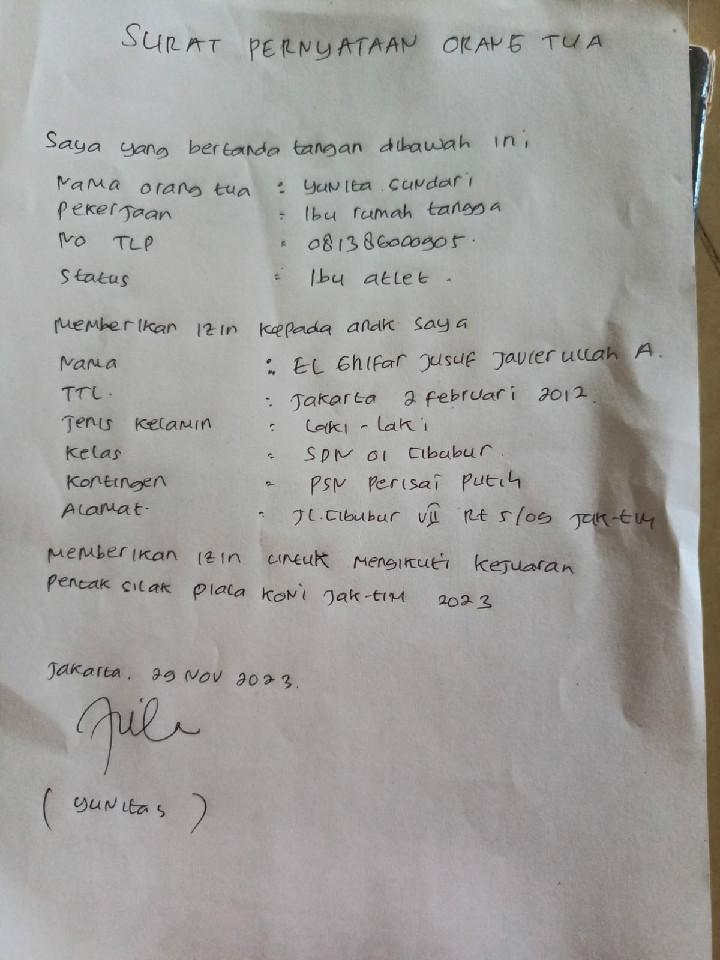 SURAT PERNYATAAN ORANG TUA
Saya yang bertanda tangan dibawah ini
Nama orang tua : Yunita Sundari
Pekerjaan : Ibu rumah tangga
No TLP : 081386000905.
Status : Ibu atlet.
Memberikan izin kepada anak saya
Nama : EL Ghifar Jusuf Javier ullah A.
TTL. : Jakarta 2 februari 2012.
Jenis Kelamin : Laki - Laki
Kelas : SDN 01 Cibubur.
Kontingen : PSN Perisai Putih
Alamat. : Jl. Cibubur VII Rt 5/09 Jak-tim
Memberikan izin untuk Mengikuti Kejuaran
Pencak Silak Piala KONI Jak-TIM 2023
Jakarta, 29 NOV 2023.
(Yunita s)